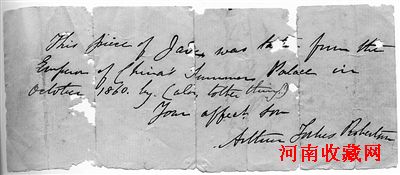 This piece of Jade was taken from the
Emperor of China's Summer Palace in
October 1860. by. (along other things)
Your affect. son
Arthur Forbes Robertson
河南收藏网